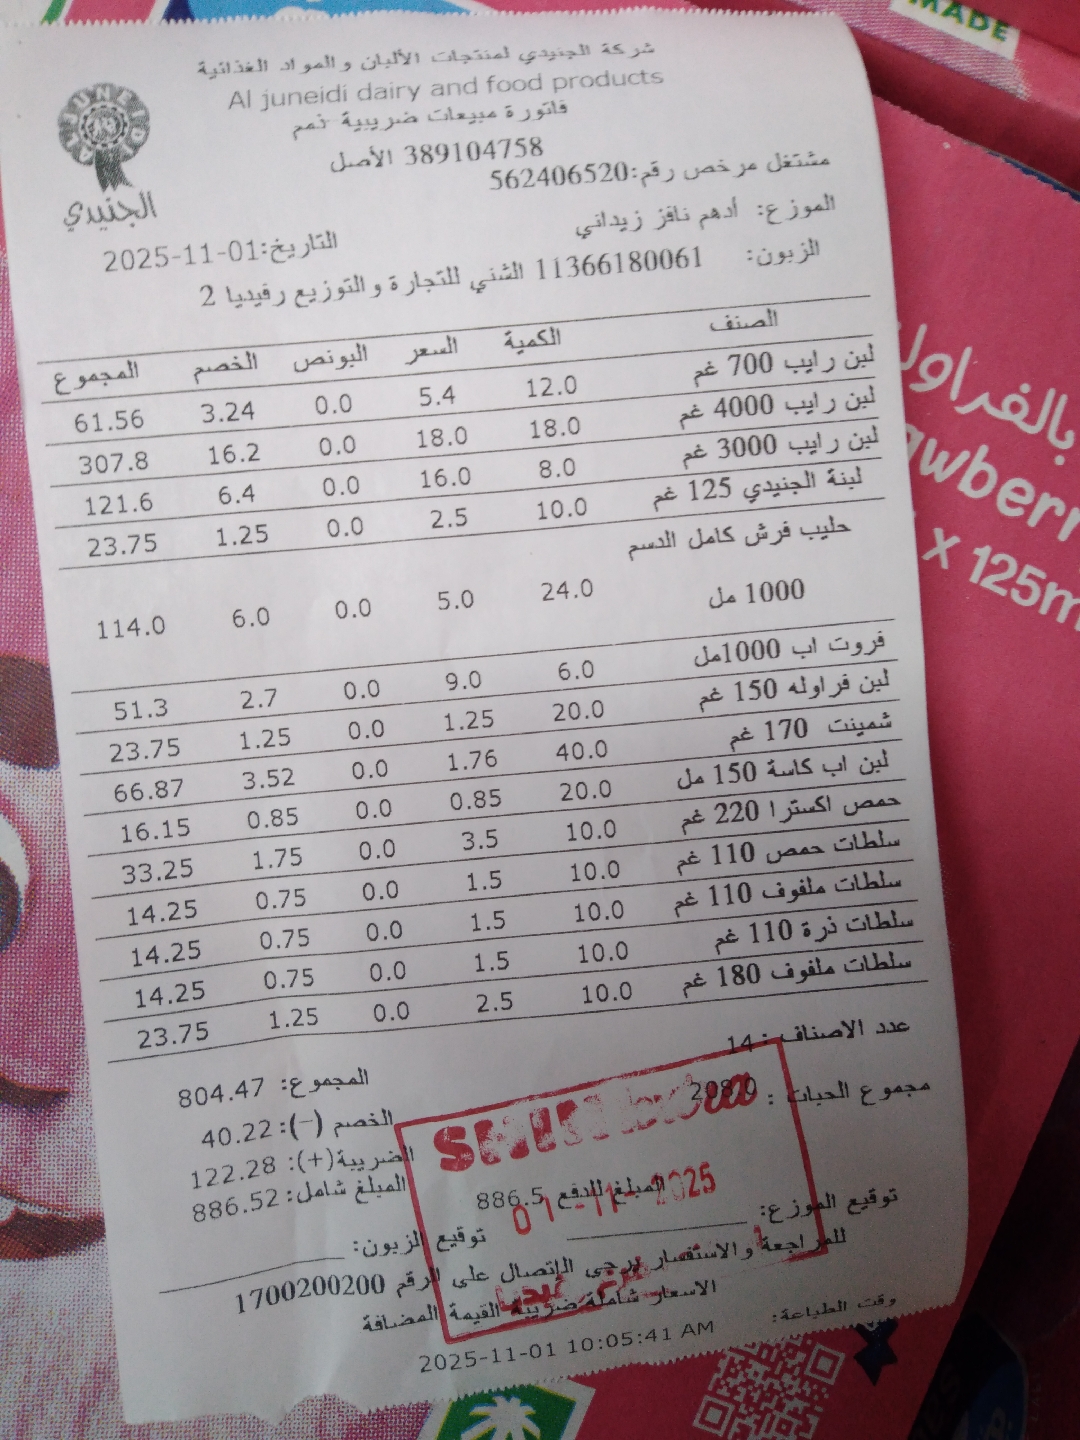 MADE
شركة الجنيدي لمنتجات الألبان والمواد الغذائية
Al juneidi dairy and food products
فاتورة مبيعات ضريبية ذمم
389104758 الأصل
مشتغل مرخص رقم:562406520
JUNEIDI
الجنيدي
الموزع: أدهم نافز زيداني
التاريخ:2025-11-01
الزبون: 11366180061 الشني للتجارة والتوزيع رفيديا 2
الصنف الكمية السعر البونص الخصم المجموع
لبن رايب 700 غم 12.0 5.4 0.0 3.24 61.56
لبن رايب 4000 غم 18.0 18.0 0.0 16.2 307.8
لبن رايب 3000 غم 8.0 16.0 0.0 6.4 121.6
لبنة الجنيدي 125 غم 10.0 2.5 0.0 1.25 23.75
حليب فرش كامل الدسم
1000 مل 24.0 5.0 0.0 6.0 114.0
فروت اب 1000مل 6.0 9.0 0.0 2.7 51.3
لبن فراوله 150 غم 20.0 1.25 0.0 1.25 23.75
شمينت 170 غم 40.0 1.76 0.0 3.52 66.87
لبن اب كاسة 150 مل 20.0 0.85 0.0 0.85 16.15
حمص اكسترا 220 غم 10.0 3.5 0.0 1.75 33.25
سلطات حمص 110 غم 10.0 1.5 0.0 0.75 14.25
سلطات ملفوف 110 غم 10.0 1.5 0.0 0.75 14.25
سلطات ذرة 110 غم 10.0 1.5 0.0 0.75 14.25
سلطات ملفوف 180 غم 10.0 2.5 0.0 1.25 23.75
عدد الاصناف : 14
المجموع: 804.47
مجموع الحبات : 208.0
الخصم (-): 40.22
الضريبة(+): 122.28
المبلغ شامل: 886.52
المبلغ للدفع 886.5
01-11-2025
توقيع الموزع:
توقيع الزبون:
للمراجعة والاستفسار يرجى الإتصال على الرقم 1700200200
الاسعار شاملة ضريبة القيمة المضافة
وقت الطباعة:
2025-11-01 10:05:41 AM
x 125m